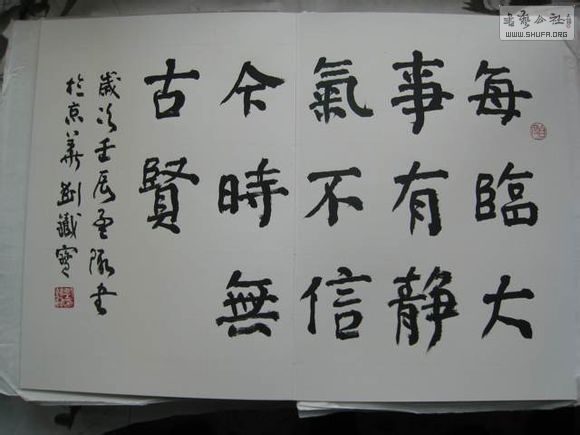 每臨大
事有静
氣不信
今時無
古賢
歲次壬辰孟陬書
於京華劉鐵寶
書藝公社
WWW.SHUFA.ORG